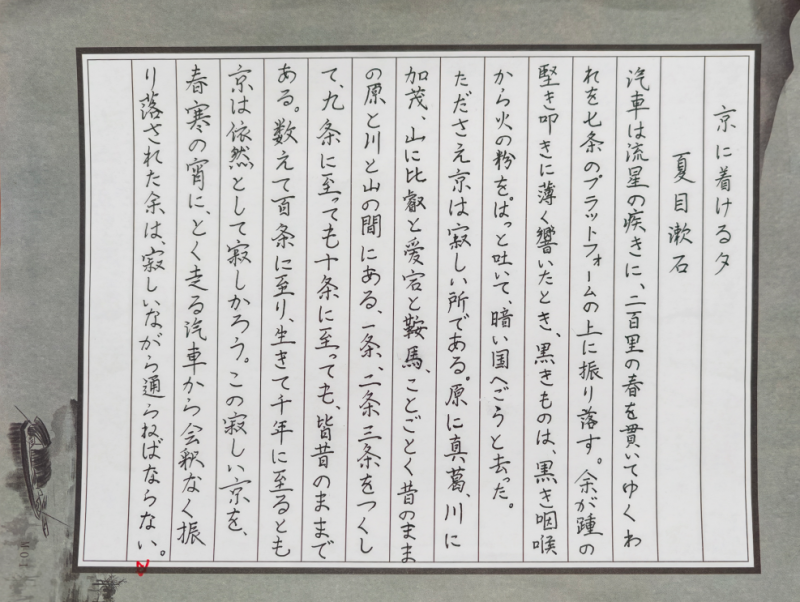 京に着ける夕
夏目漱石
汽車は流星の疾きに、二百里の春を貫いてゆくわ
れを七条のプラットフォームの上に振り落す。余が踵の
堅き叩きに薄く響いたとき、黒きものは、黒き咽喉
から火の粉をぱっと吐いて、暗い国へごうと去った。
たださえ京は寂しい所である。原に真葛、川に
加茂、山に比叡と愛宕と鞍馬、ことごとく昔のまま
の原と川と山の間にある、一条、二条三条をつくし
て、九条に至っても十条に至っても、皆昔のままで
ある。数えて百条に至り、生きて千年に至るとも
京は依然として寂しかろう。この寂しい京を、
春寒の宵に、とく走る汽車から会釈なく振
り落された余は、寂しいながら通らねばならない。